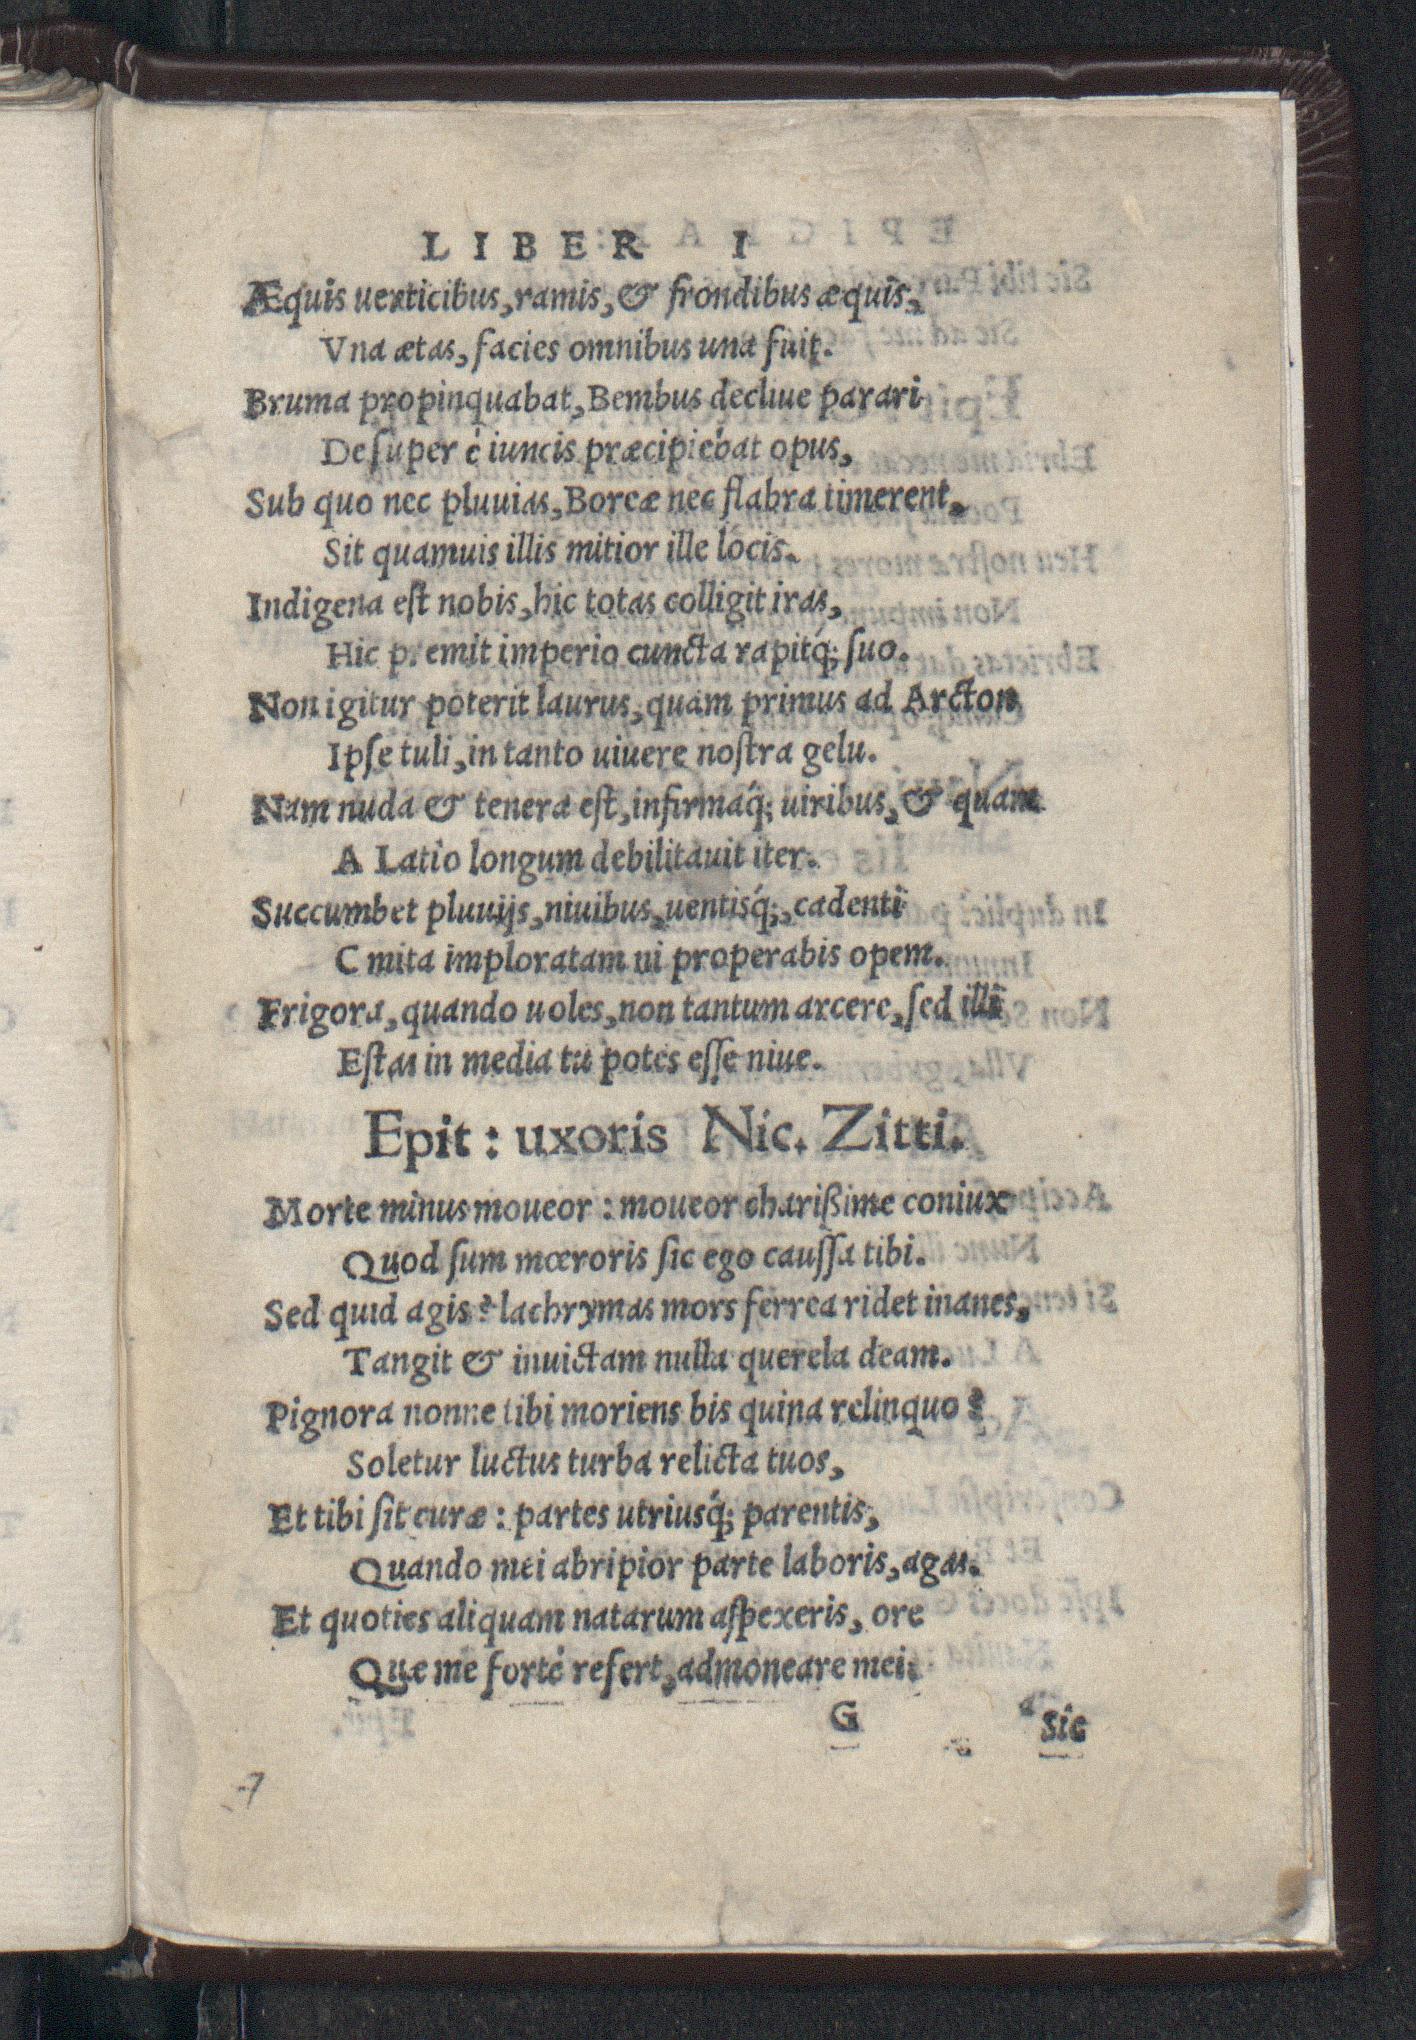 LIBER I
Æquis uerticibus, ramis, & frondibus æquis,
Vna ætas, facies omnibus una fuit.
Bruma propinquabat, Bembus decliue parari
Desuper è iuncis præcipiebat opus,
Sub quo nec pluuias, Boreæ nec flabra timerent,
Sit quamuis illis mitior ille locis.
Indigena est nobis, hic totas colligit iras,
Hic premit imperio cuncta rapitq́; suo.
Non igitur poterit laurus, quam primus ad Arcton
Ipse tuli, in tanto uiuere nostra gelu.
Nam nuda & tenera est, infirmaq́; uiribus, & quam
A Latio longum debilitauit iter.
Succumbet pluuijs, niuibus, uentisq́;, cadenti
C mita imploratam ni properabis opem.
Frigora, quando uoles, non tantum arcere, sed illi
Estas in media tu potes esse niue.
Epit: uxoris Nic. Zitti.
Morte minus moueor: moueor charißime coniux
Quod sum mœroris sic ego caussa tibi.
Sed quid agis? lachrymas mors ferrea ridet inanes,
Tangit & inuictam nulla querela deam.
Pignora nonne tibi moriens bis quina relinquo?
Soletur luctus turba relicta tuos,
Et tibi sit curæ: partes utriusq́; parentis,
Quando mei abripior parte laboris, agas.
Et quoties aliquam natarum aspexeris, ore
Quæ me fortè refert, admoneare mei:
G Sic
7